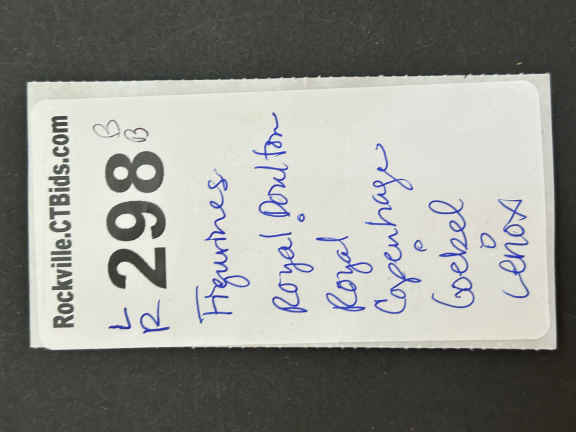 Rockville.CTBids.com
LR 298 BB
Figurines
Royal Doulton
Royal
Copenhage
Goebel
Lenox